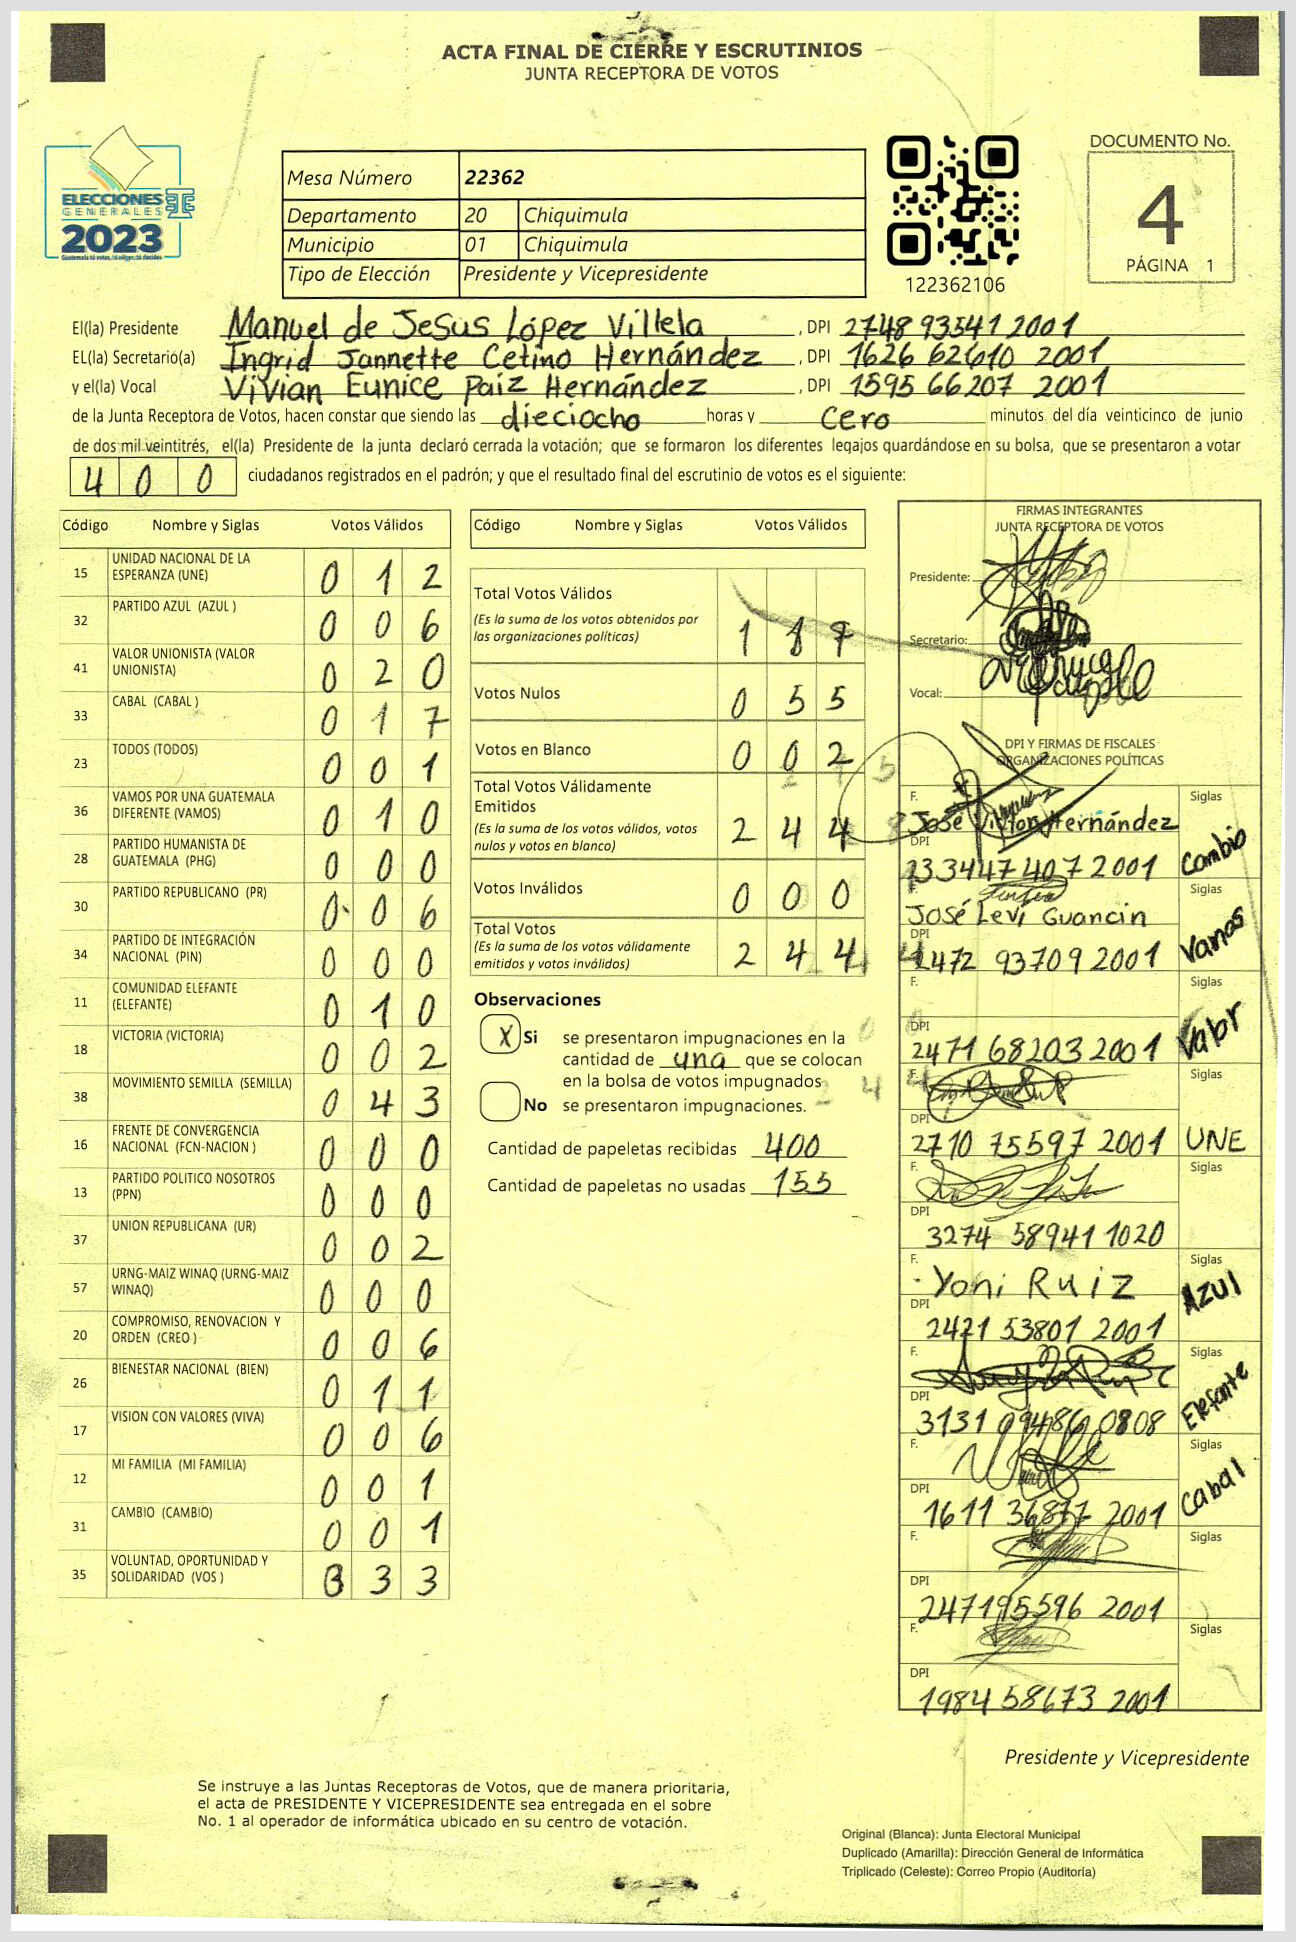 ACTA FINAL DE CIERRE Y ESCRUTINIOS
JUNTA RECEPTORA DE VOTOS
ELECCIONES
GENERALES
2023
Mesa Número 22362
Departamento 20 Chiquimula
Municipio 01 Chiquimula
Tipo de Elección Presidente y Vicepresidente
122362106
DOCUMENTO No.
4
PÁGINA 1
El(la) Presidente Manuel de Jesus López Villela , DPI 2748 93541 2001
EL(la) Secretario(a) Ingrid Jannette Cetino Hernández , DPI 1626 62610 2001
y el(la) Vocal Vivian Eunice Paiz Hernández , DPI 1595 66207 2001
de la Junta Receptora de Votos, hacen constar que siendo las dieciocho horas y cero minutos del día veinticinco de junio
de dos mil veintitrés, el(la) Presidente de la junta declaró cerrada la votación; que se formaron los diferentes legajos guardándose en su bolsa, que se presentaron a votar
400 ciudadanos registrados en el padrón; y que el resultado final del escrutinio de votos es el siguiente:
Código Nombre y Siglas Votos Válidos
15 UNIDAD NACIONAL DE LA ESPERANZA (UNE) 0 1 2
32 PARTIDO AZUL (AZUL ) 0 0 6
41 VALOR UNIONISTA (VALOR UNIONISTA) 0 2 0
33 CABAL (CABAL ) 0 1 7
23 TODOS (TODOS) 0 0 1
36 VAMOS POR UNA GUATEMALA DIFERENTE (VAMOS) 0 1 0
28 PARTIDO HUMANISTA DE GUATEMALA (PHG) 0 0 0
30 PARTIDO REPUBLICANO (PR) 0 0 6
34 PARTIDO DE INTEGRACIÓN NACIONAL (PIN) 0 0 0
11 COMUNIDAD ELEFANTE (ELEFANTE) 0 1 0
18 VICTORIA (VICTORIA) 0 0 2
38 MOVIMIENTO SEMILLA (SEMILLA) 0 4 3
16 FRENTE DE CONVERGENCIA NACIONAL (FCN-NACION ) 0 0 0
13 PARTIDO POLITICO NOSOTROS (PPN) 0 0 0
37 UNION REPUBLICANA (UR) 0 0 2
57 URNG-MAIZ WINAQ (URNG-MAIZ WINAQ) 0 0 0
20 COMPROMISO, RENOVACION Y ORDEN (CREO ) 0 0 6
26 BIENESTAR NACIONAL (BIEN) 0 1 1
17 VISION CON VALORES (VIVA) 0 0 6
12 MI FAMILIA (MI FAMILIA) 0 0 1
31 CAMBIO (CAMBIO) 0 0 1
35 VOLUNTAD, OPORTUNIDAD Y SOLIDARIDAD (VOS ) 3 3
Código Nombre y Siglas Votos Válidos
Total Votos Válidos
(Es la suma de los votos obtenidos por
las organizaciones políticas) 1 8 7
Votos Nulos 0 5 5
Votos en Blanco 0 0 2
Total Votos Válidamente
Emitidos
(Es la suma de los votos válidos, votos
nulos y votos en blanco) 2 4 4
Votos Inválidos 0 0 0
Total Votos
(Es la suma de los votos válidamente
emitidos y votos inválidos) 2 4 4
Observaciones
X Si se presentaron impugnaciones en la
cantidad de una que se colocan
en la bolsa de votos impugnados
No se presentaron impugnaciones.
Cantidad de papeletas recibidas 400
Cantidad de papeletas no usadas 155
FIRMAS INTEGRANTES
JUNTA RECEPTORA DE VOTOS
Presidente:
Secretario:
Vocal:
DPI Y FIRMAS DE FISCALES
ORGANIZACIONES POLÍTICAS
F. José Victor Hernández Siglas
DPI 407 2001 Cambio
F. José Levi Guancin Siglas
DPI 2472 93709 2001 Vamos
F. Siglas
DPI 2471 68203 2001 Valor
F. Siglas
DPI 2710 75597 2001 UNE
F. Siglas
DPI 3274 58941 1020
F. Yoni Ruiz Siglas
DPI 2421 53801 2001 Azul
F. Siglas
DPI 3131 09486 0808 Elefante
F. Siglas
DPI 1611 36877 2001 Cabal
F. Siglas
DPI 2471 95596 2001
F. Siglas
DPI 1984 58673 2001
Presidente y Vicepresidente
Se instruye a las Juntas Receptoras de Votos, que de manera prioritaria,
el acta de PRESIDENTE Y VICEPRESIDENTE sea entregada en el sobre
No. 1 al operador de informática ubicado en su centro de votación.
Original (Blanca): Junta Electoral Municipal
Duplicado (Amarilla): Dirección General de Informática
Triplicado (Celeste): Correo Propio (Auditoría)